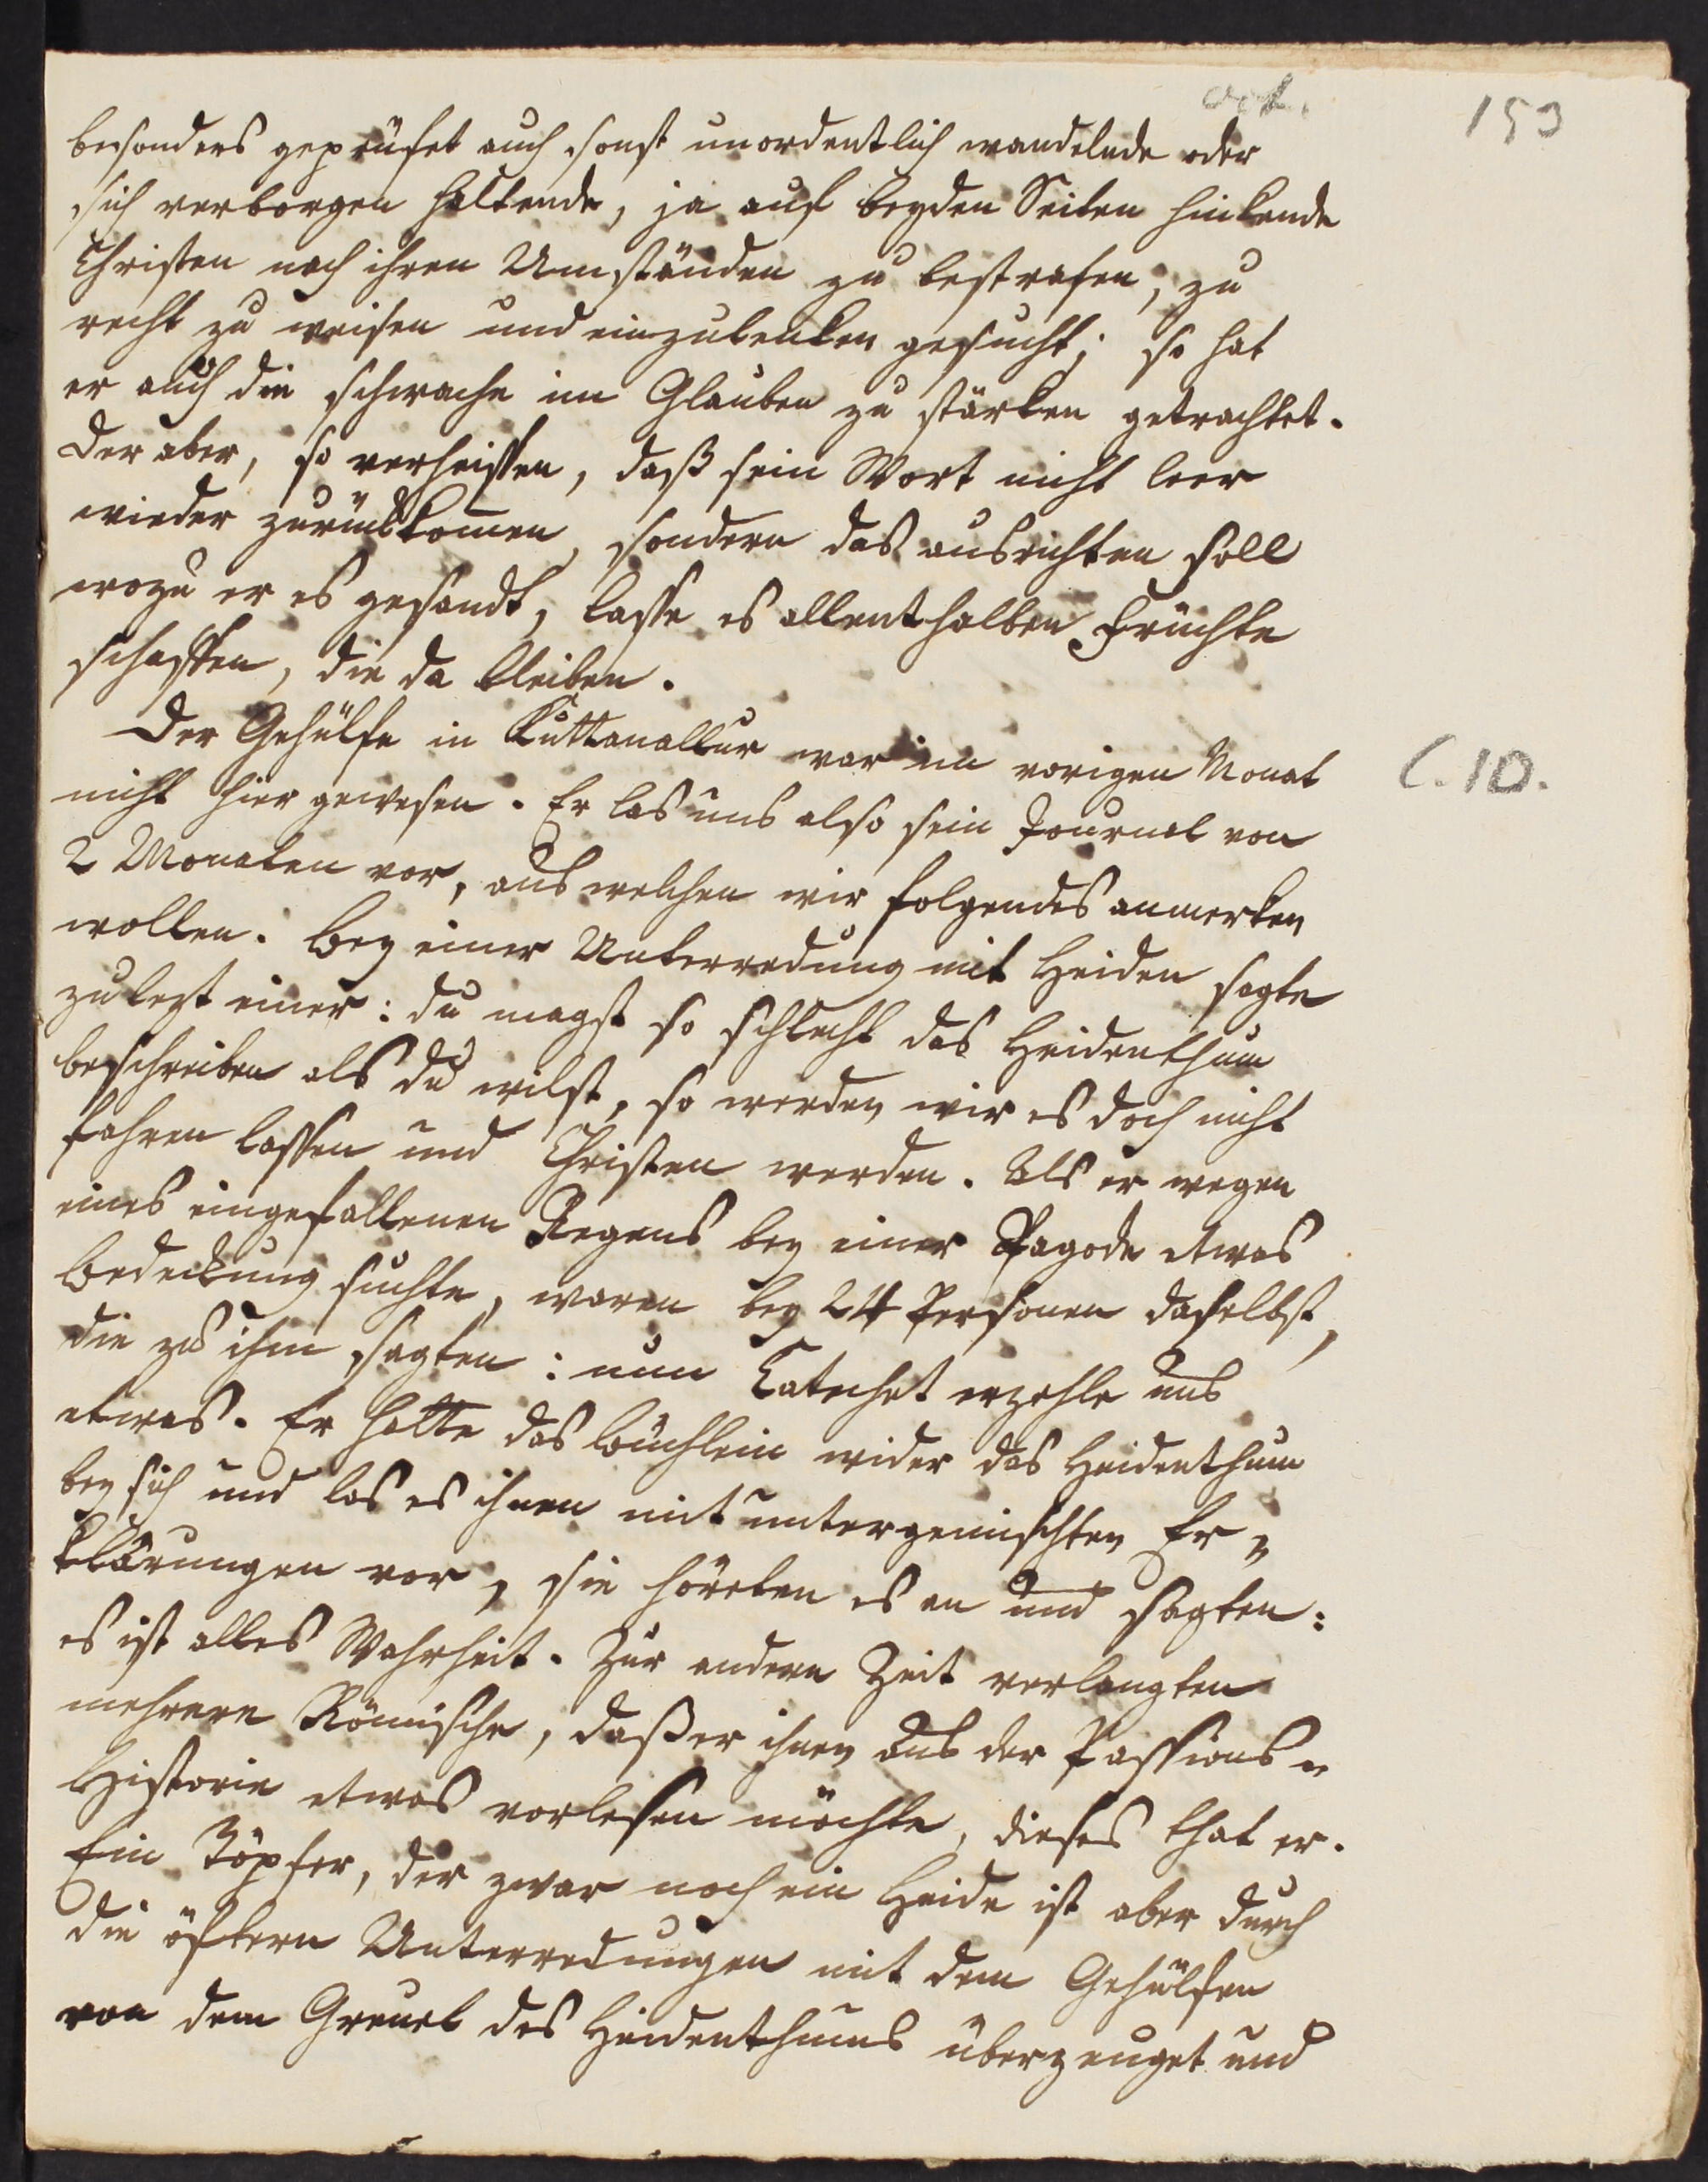 oct.
153
besonders geprüfet auch sonst unordentlich wandelnde oder
sich verborgen haltende, ja auf beyden Seiten hinkende
Christen nach ihren Umständen zu bestrafen, zu
recht zu weisen und einzulenken gesucht; so hat
er auch die schwache im Glauben zu stärken getrachtet.
Der aber, so verheissen, daß sein Wort nicht leer
wieder zurückkommen, sondern das ausrichten soll
wozu er es gesandt, lasse es allenthalben Früchte
schaffen, die da bleiben.
Der Gehülfe in Kuttanallur war im vorigen Monat
C. 10.
nicht hier gewesen. Er las uns also sein Journal von
2 Monaten vor, aus welchen wir folgendes anmerken
wollen. Bey einer Unterredung mit Heiden sagte
zulezt einer: du magst so schlecht das Heidenthum
beschreiben als du wilst, so werden wir es doch nicht
fahren lassen und Christen werden. Als er wegen
eines eingefallenen Regens bey einer Pagode etwas
Bedeckung suchte, waren bey 24 Personen daselbst,
die zu ihm sagten: nun Catechet erzehle uns
etwas. Er hatte das Büchlein wider das Heidenthum
bey sich und las es ihnen mit untergemischten Er-
klärungen vor, sie höreten es an und sagten:
es ist alles Wahrheit. Zur andern Zeit verlangten
mehrere Römische, daß er ihnen aus der Passions-
Historie etwas vorlesen möchte, dieses that er.
Ein Töpfer, der zwar noch ein Heide ist aber durch
die öftern Unterredungen mit dem Gehülfen
von dem Greuel des Heidenthums überzeuget und